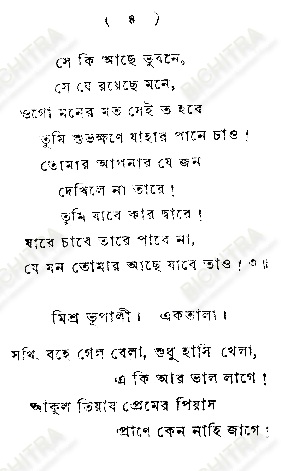 ( ৪ )
সে কি আছে ভুবনে,
সে যে রয়েছে মনে,
ওগো মনের মত সেই ত হবে
তুমি শুভক্ষণে যাহার পানে চাও !
তোমার আপনার যে জন
দেখিলে না তারে !
তুমি যাবে কার দ্বারে !
যারে চাবে তারে পাবে না,
যে মন তোমার আছে যাবে তাও !
মিশ্র ভূপালী। একতালা।
সখি বহে গেল বেলা, শুধু হাসি খেলা,
এ কি আর ভাল লাগে !
আকুল তিয়াষ প্রেমের পিয়াস
প্রাণে কেন নাহি জাগে !
BICHITRA